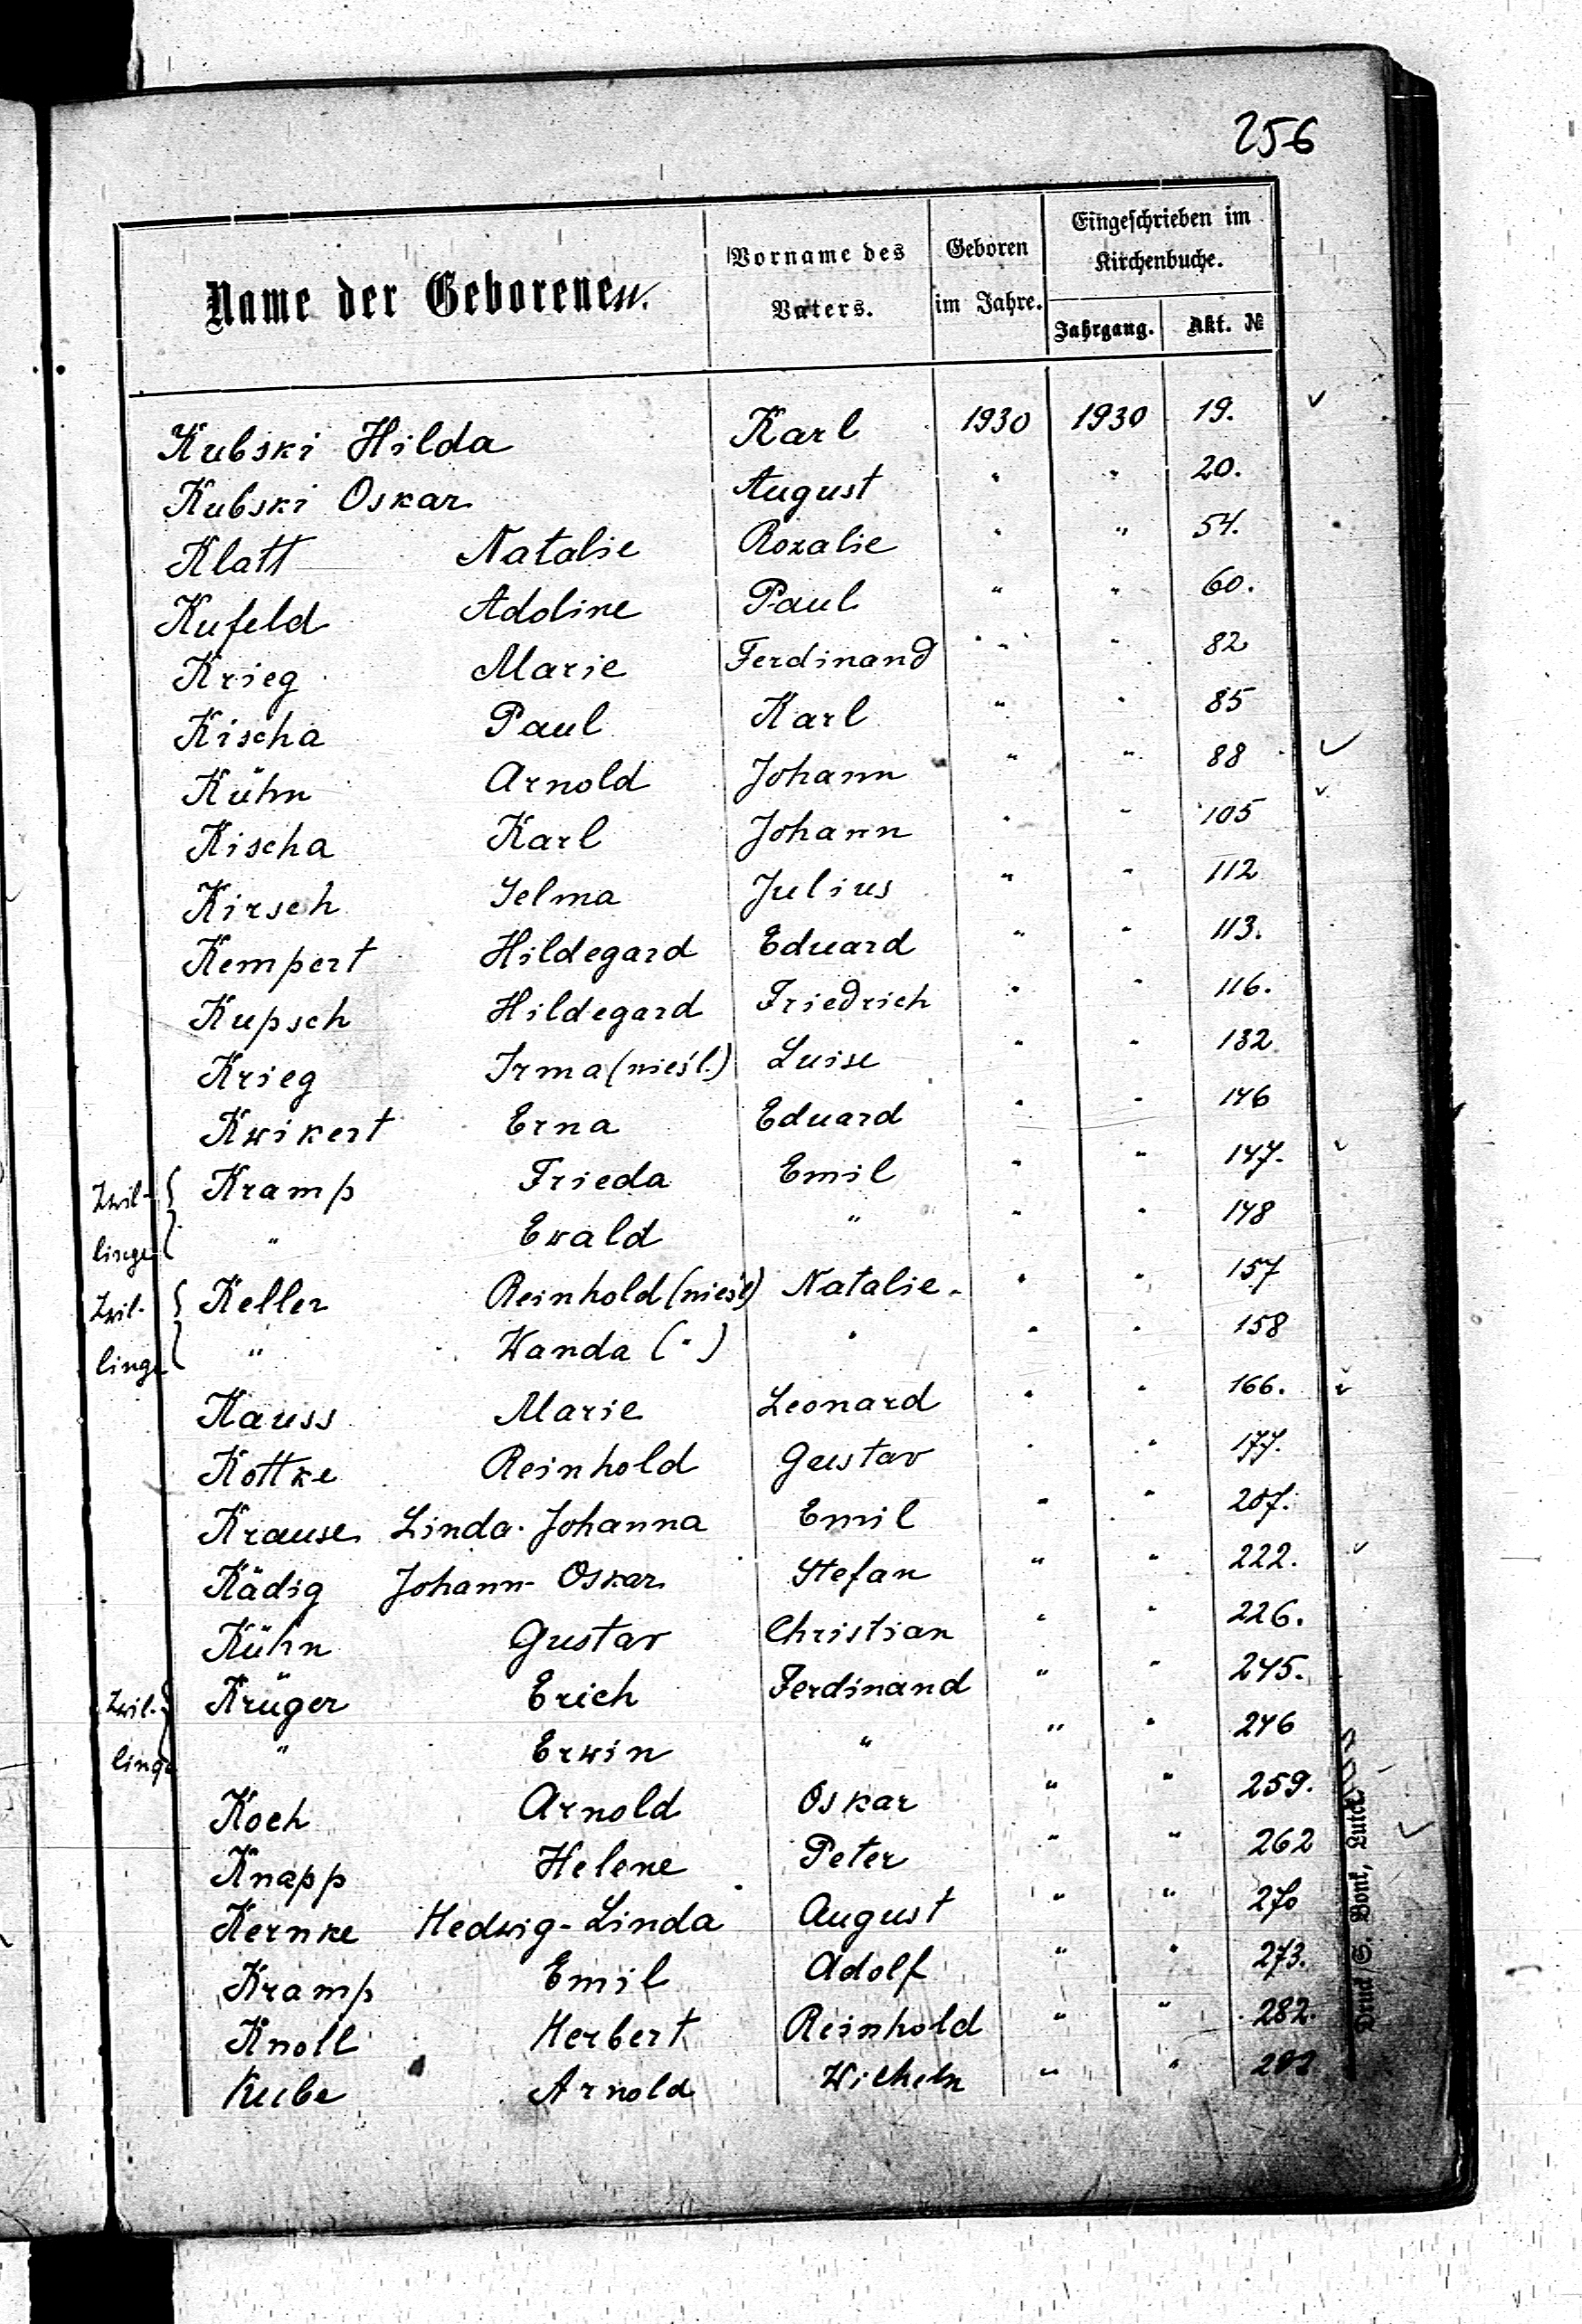 256
Name der Geborenen.
Vorname des Vaters.
Geboren im Jahre.
Eingeschrieben im Kirchenbuche.
Jahrgang. Akt. №
Kubski Hilda Karl 1930 1930 19.
Kubski Oskar August " " 20.
Klatt Natalie Rozalie " " 54.
Kufeld Adoline Paul " " 60.
Krieg Marie Ferdinand " " 82
Kischa Paul Karl " " 85
Kühn Arnold Johann " " 88
Kischa Karl Johann " " 105
Kirsch Selma Julius " " 112
Kempert Hildegard Eduard " " 113.
Kupsch Hildegard Friedrich " " 116.
Krieg Irma (nieśl.) Luise " " 132
Kwikert Erna Eduard " " 146
Zwil- Kramp Frieda Emil " " 147.
linge " Ewald " " " 148
Zwil- Keller Reinhold (nieśl) Natalie. " " 157
linge " Wanda (") " " " 158
Kauss Marie Leonard " " 166.
Kottke Reinhold Gustav " " 177.
Krause Linda-Johanna Emil " " 207.
Kädig Johann-Oskar Stefan " " 222.
Kühn Gustav Christian " " 226.
Zwil- Krüger Erich Ferdinand " " 245.
linge " Erwin " " " 246
Koch Arnold Oskar " " 259.
Knapp Helene Peter " " 262
Kernke Hedwig-Linda August " " 270
Kramp Emil Adolf " " 273.
Knoll Herbert Reinhold " " 282.
Kube Arnold Wilhelm " "
Druck S. Bonk, Luck